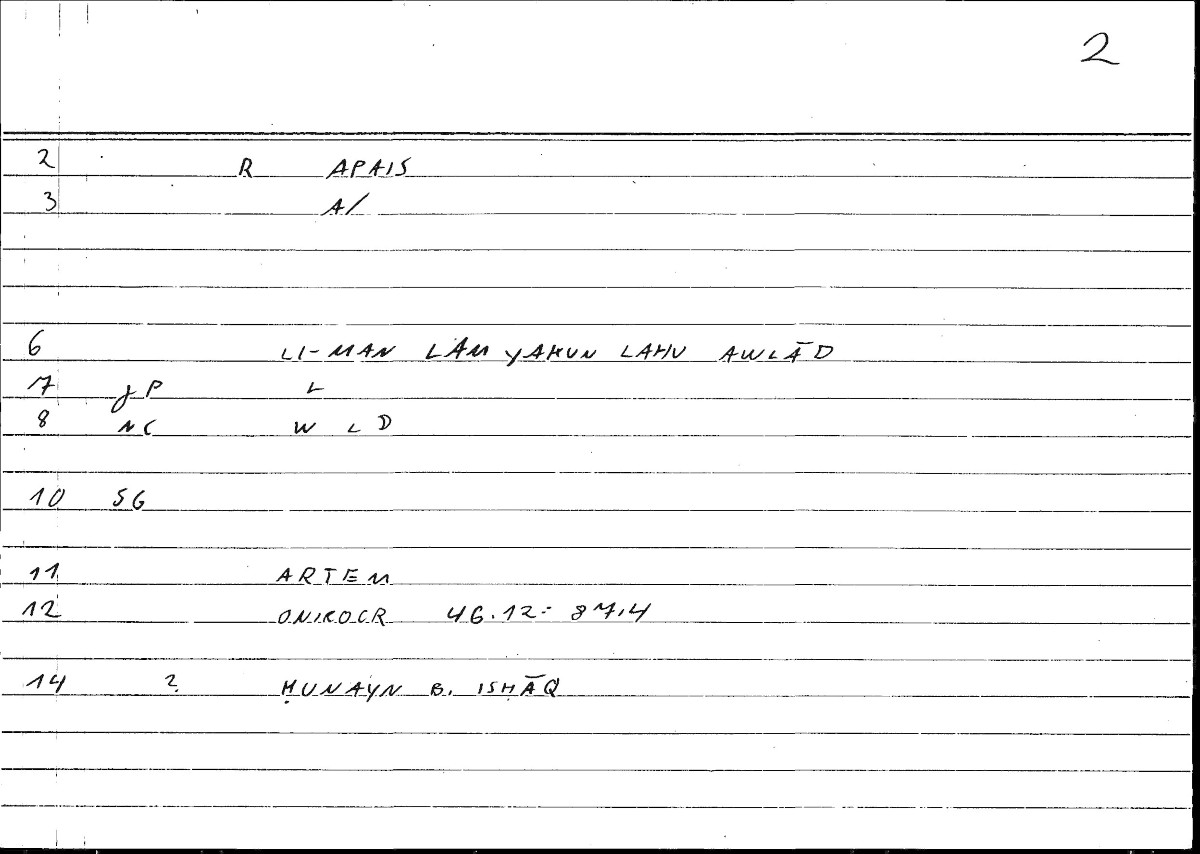 2
2 R APAIS
3 A/
6 LI-MAN LAM YAKUN LAHU AWLĀD
7 gP L
8 NC W L D
10 SG
11 ARTEM
12 ONIROCR 46.12 = 87,4
14 2 ḤUNAYN B. ISḤĀQ